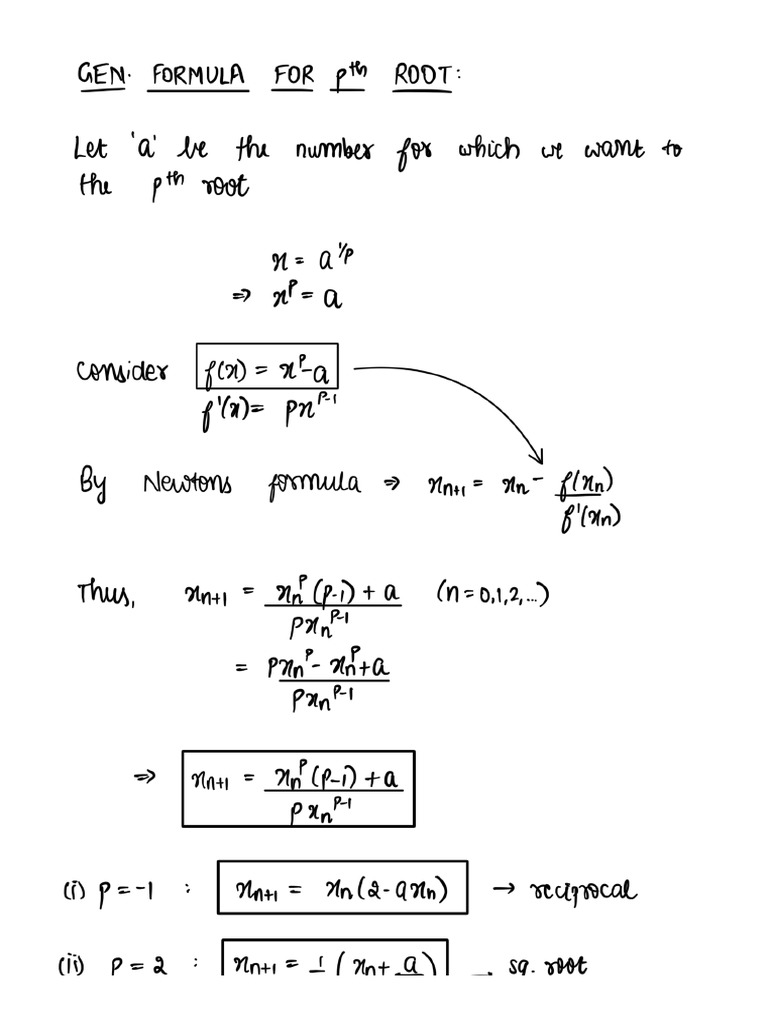 GEN. FORMULA FOR pth ROOT:
Let 'a' be the number for which we want to
the pth root
x = a^1/p
⇒ x^p = a
Consider f(x) = x^p - a
f'(x) = px^p-1
By Newtons formula ⇒ x_n+1 = x_n - f(x_n) / f'(x_n)
Thus, x_n+1 = x_n^p (p-1) + a / px_n^p-1 (n = 0,1,2,...)
= px_n^p - x_n^p + a / px_n^p-1
⇒ x_n+1 = x_n^p (p-1) + a / px_n^p-1
(i) p = -1 : x_n+1 = x_n (2 - ax_n) → reciprocal
(ii) p = 2 : x_n+1 = 1 ( x_n + a ) → sq. root